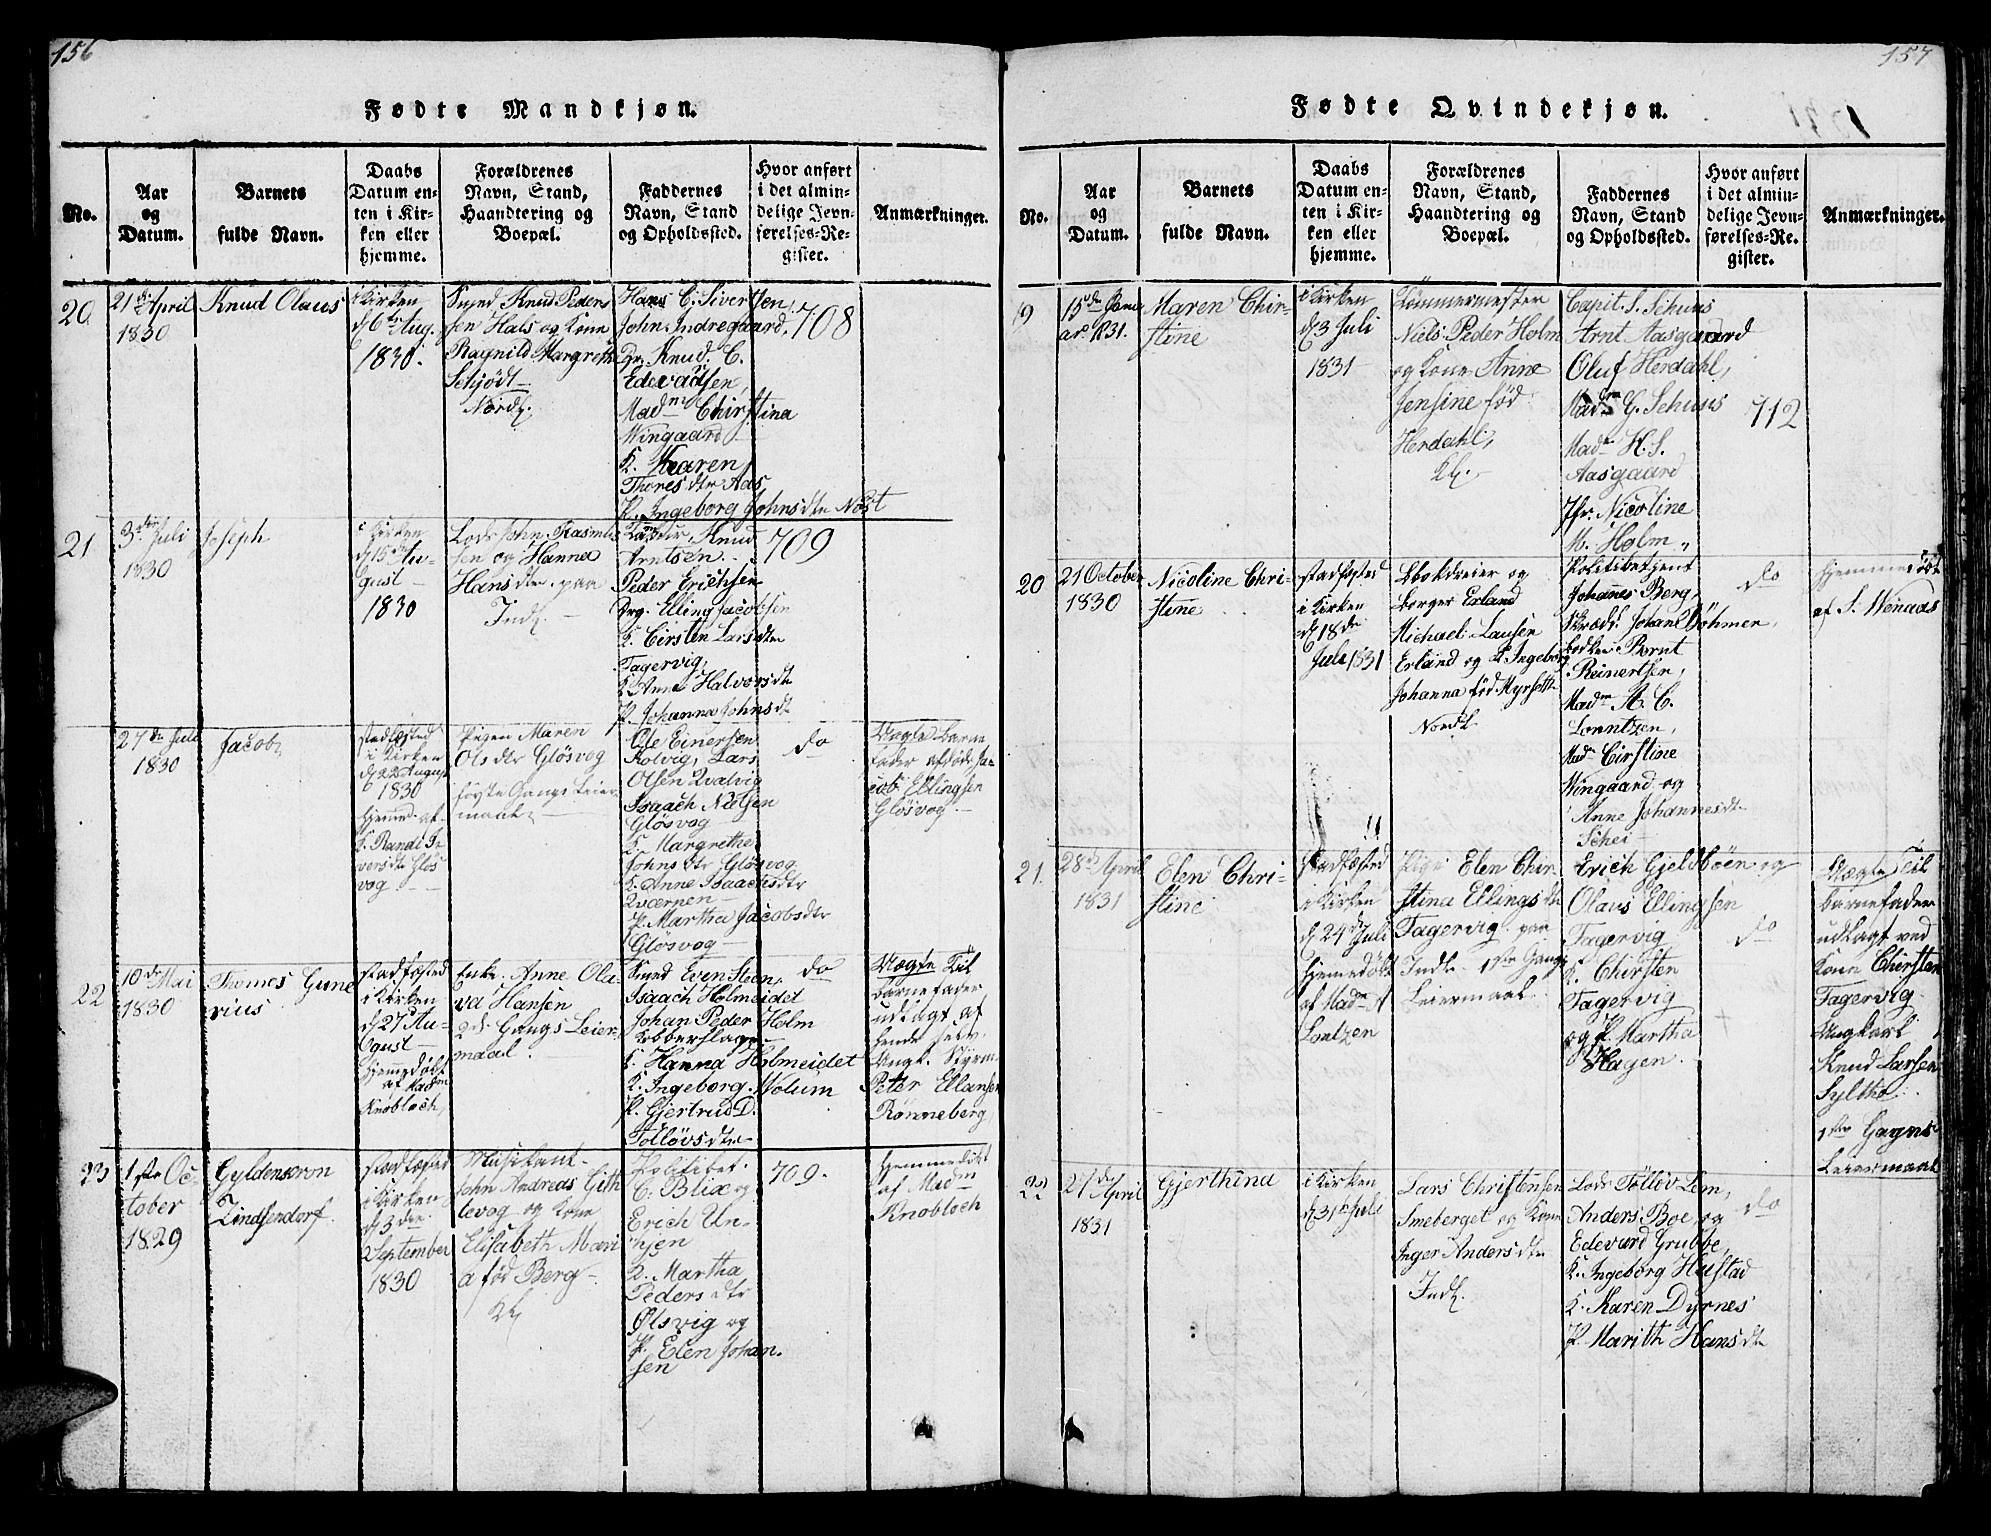 156
Fødte Mandkjøn.
No.
Aar
og
Datum.
Barnets
fulde Navn.
Daabs
Datum en-
ten i Kir-
ken eller
hjemme.
Forældrenes
Navn, Stand,
Haandtering og
Boepæl.
Faddernes
Navn, Stand
og Opholdssted.
Hvor anført
i det almin-
delige Jevn-
førelses-Re-
gister.
Anmærkninger.
20
21de April
1830
Knud Olaus
i Kirken
d 6te Aug.
1830.
Smed Knud Peder
sen Hals og Kone
Ragnild Margreth
Schjødt
Nordl.
Hans C. Sivertsen,
John Indregaard,
Dr. Knud. C.
Edevadsen,
Madm Chirstina
Wingaard
K. Karen
Thores dtr Aas
P. Ingeborg Johns dtr Nost
708
21
3die Juli
1830
Joseph
i Kirken
d 15de Au-
gust
1830
Lods John Rasmu
sen og Hanna
Hans dtr paa
Indl.
Knud
Arntsen
Peder Erichsen
Drg. Elling Jacobsen
K. Cirsten Lars dtr
Fagervig,
K. Anne Halvors dtr
P. Johanna Johns dtr
709
27de Juli
1830
Jacob
stadfæsted
i Kirken
d 22 August
1830
Hjemmed. af
K. Randi I
vers dtr Gløs
vog
Pigen Maren
Ols dtr Gløsvog
første Gangs Leier
maal
Ole Einersen
Kolvig, Lars
Olsen Qvalvig
Isaach Nielsen
Gløsvog
K. Margrethe
Johns dtr Gløsvog
K. Anne Isaachs dtr
Qværnen
P. Martha Jacobs dtr
Gløsvog
do
Uægte Barne
fader afdøde Ja-
cob Ellingsen
Gløsvog
22
10de Mai
1830
Thomes Gune
rius
stadfæsted
i Kirken
d 27 Au-
gust
Hjemedøbt
af Madm
Knobloch
Enke Anne Ola-
va Hansen
2de Gangs Leier
maal.
Smed Even Steen,
Isaach Holmeidet
Johan Peder Holm
Kobberslager
K. Hanna Holmeidet
K. Ingeborg Wolum
P. Gjertrud D.
Tolløvs dtr
do
Uægte Til
barnefader
udlagt af
hende selv
Ungk. Styrm.
Peter Ellansen
Rønneberg
23
1ste Oc
tober
1829
Gyldenkron
Zindsendorf.
stadfæsted
i Kirken
d 3die
September
1830
Musikant
John Andreas Gith
levog og Kone
Elisabeth Mari
a fød Berg
Kl
Politibet.
C. Blix og
Erich Un-
hjen
K. Martha
Peders dtr
Ølsvig og
P. Elen Johan-
sen
709.
Hjemmedøbt
af Madm
Knobloch
157
Fødte Qvindekjøn.
1831
No.
Aar
og
Datum.
Barnets
fulde Navn.
Daabs
Datum en-
ten i Kir-
ken eller
hjemme.
Forældrenes
Navn, Stand,
Haandtering og
Boepæl.
Faddernes
Navn, Stand
og Opholdssted.
Hvor anført
i det almin-
delige Jevn-
førelses-Re-
gister.
Anmærkninger.
19
15de Janu
ar 1831.
Maren Chir-
stine
i Kirken
d 3 Juli
1831
Tømmermester
Niels Peder Holm
og Kone Anne
Jensine fød
Herdahl,
Kl.
Capit. S. Schuus
Arnt Aasgaard
Oluf Herdahl,
Madm G. Schuus
Madm H. S.
Aasgaard
Jfr. Nicoline
M. Holm
712
20
21 October
1830
Nicoline Chri-
stine
stadfæsted
i Kirken
d 18de
Juli 1831
Blokdreier og
borger Erland
Michael Lausen
Erland og K Ingeborg
Johanna fød Myrseth
Nordl
Politibetjent
Johannes Berg,
Skrædd. Johan Bøhmer,
Bernt
Reinertsen,
Madm A. C.
Lorentzen,
Madm Cirstine
Wingaard og
Anne Johannes dtr
Schei
do
Hjemmedøbt
af S. Wenaas
21.
28de April
1831
Elen Chri-
stine
stadfæsted
i Kirken
d 24de Juli
Hjemmedøbt
af Madm
Lontzen
Pige Elen Chir
stina Ellings dtr
Fagervig paa
Indl. 1ste Gangs
Leiermaal
Erich Gjeldbøen og
Olaus Ellingsen
Fagervig
K. Chirsten
Fagervig
og P Martha
Hagen.
do
Uægte Til
barnefader
udlagt ved
Kone Chirsten
Fagervig
Ungkarl
Knud Larsen
Sylthe
1ste Gagns
Leiermaal
22
27de April
1831
Gjerthina
i Kirken
d 31te Juli
Lars Christensen
Smeberget og Kone
Inger Anders dtr
Indl.
Lods Tølløv Lem,
Anders Boe og
Edevard Grubbe,
K. Ingeborg Hustad
K. Karen Dyrnes
P. Marith Hans dtr
do